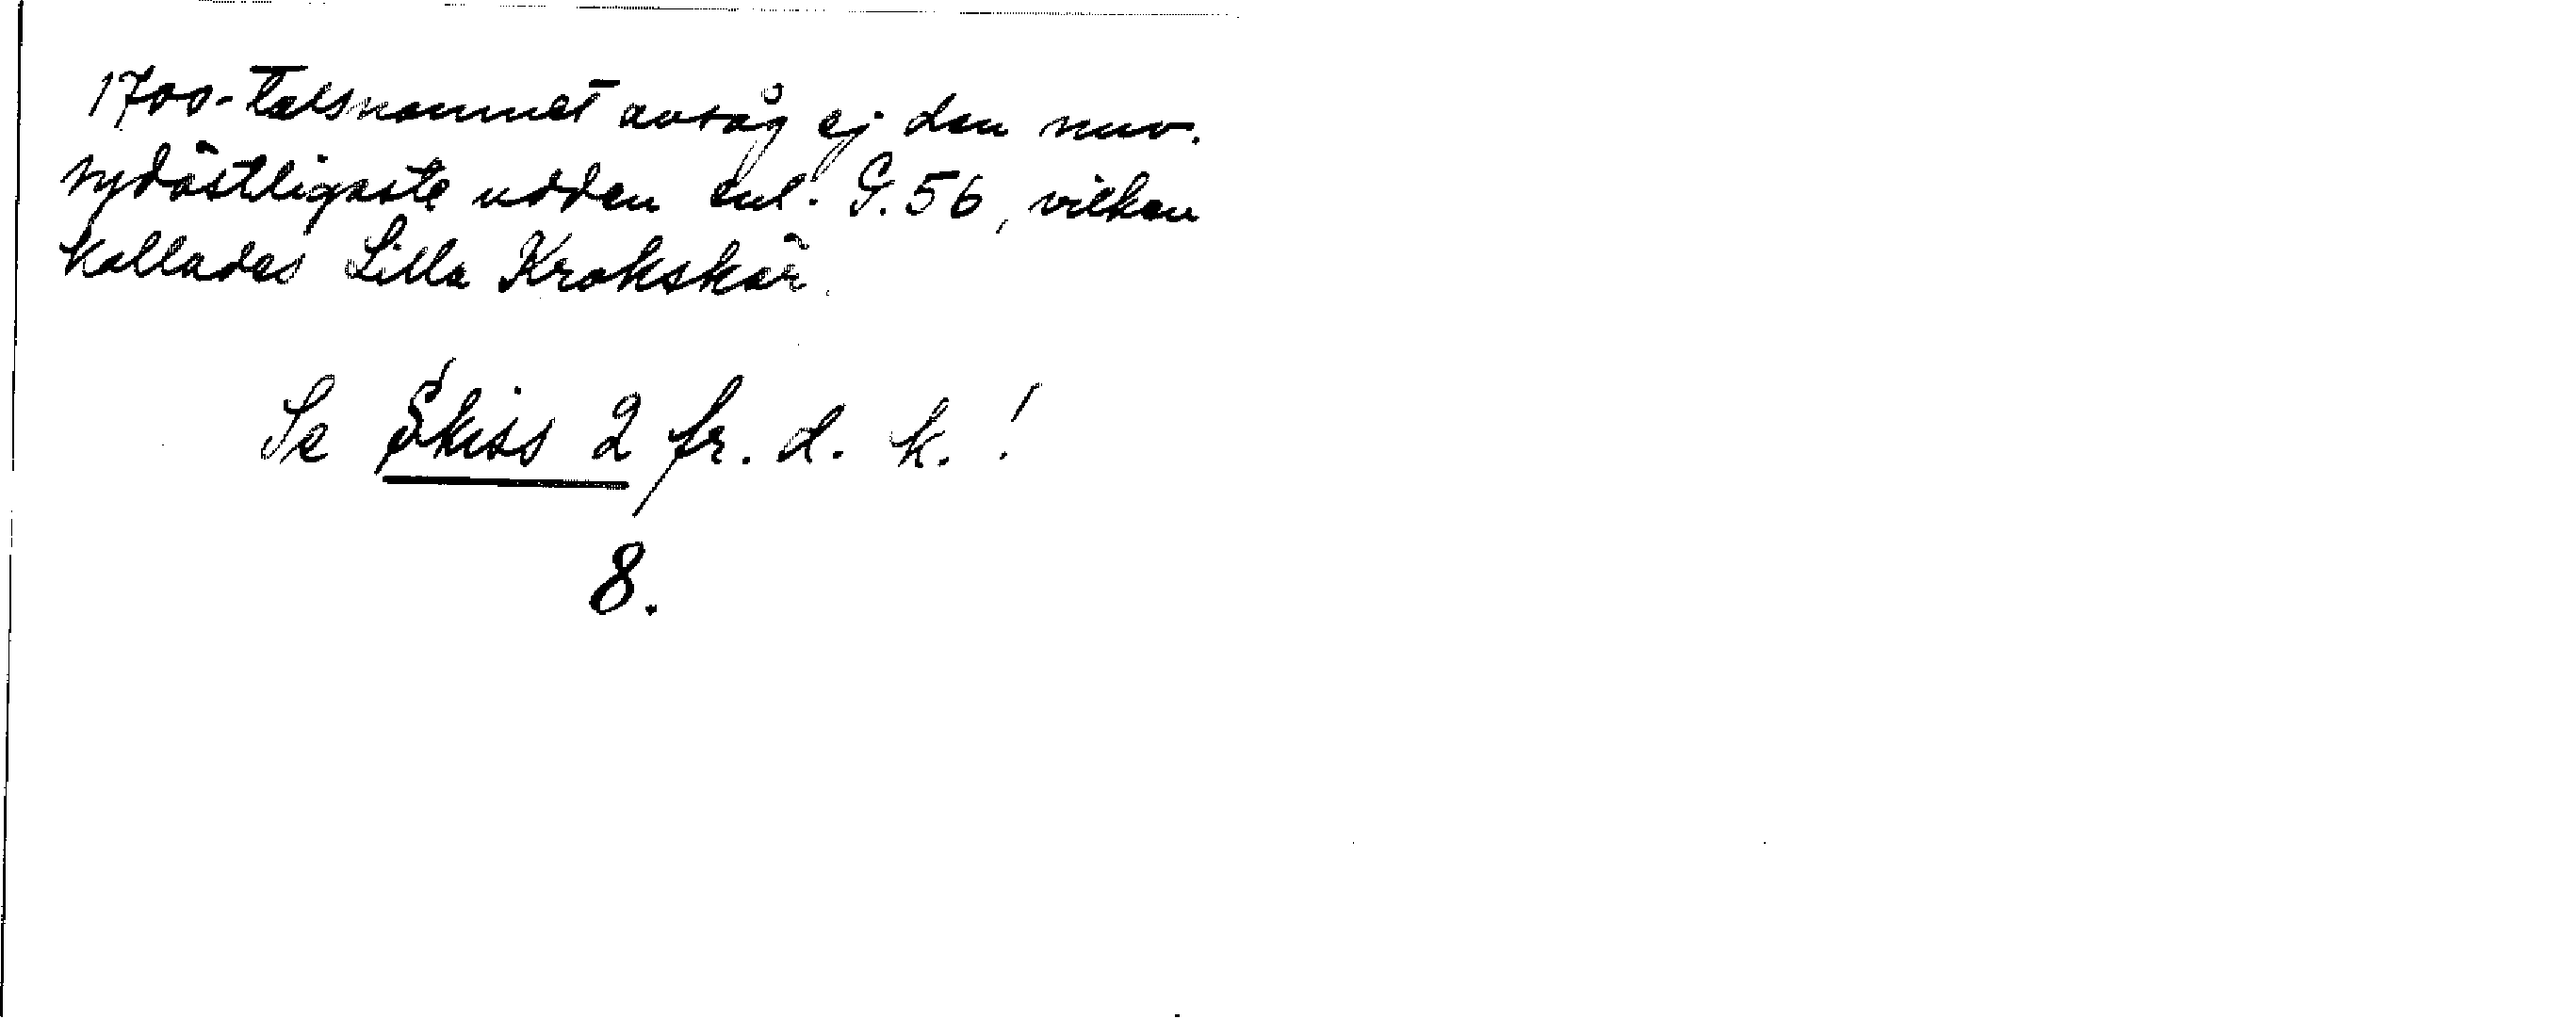 1700-talsnamnet avsåg ej den nuv.
sydöstligaste udden enl. G.56, vilken
kallades Lilla Krokskär.
Se Skiss 2 fr. d. k.!
8.